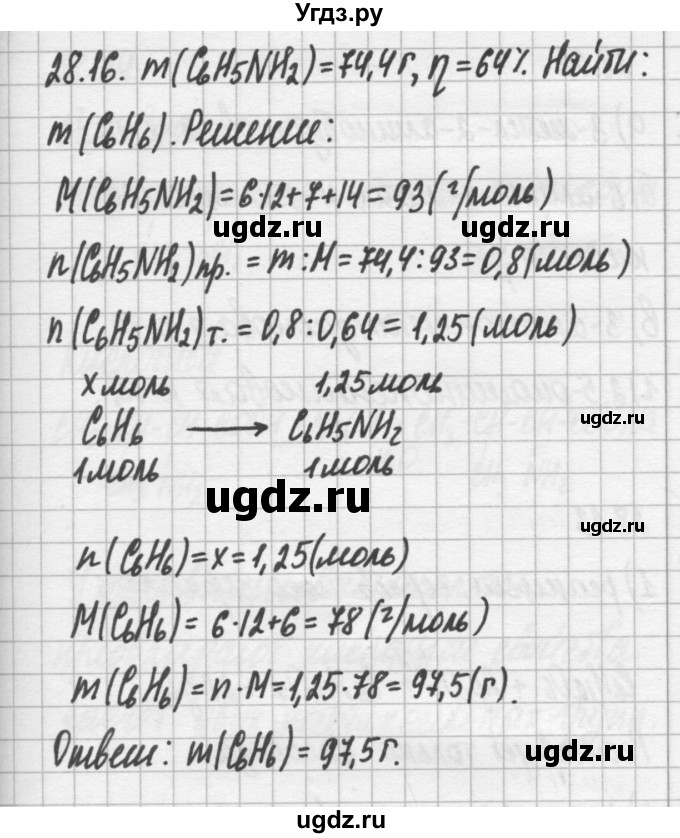 Угдз.ру
28.16. m(C₆H₅NH₂)=74,4г, η=64%. Найти:
m(C₆H₆). Решение:
M(C₆H₅NH₂)=6·12+7+14=93(г/моль)
ugdz.ru ugdz.ru
n(C₆H₅NH₂)пр. = m:M=74,4:93=0,8(моль)
n(C₆H₅NH₂)т. = 0,8:0,64=1,25(моль)
x моль 1,25 моль
ugdz.ru
C₆H₆ ⟶ C₆H₅NH₂
1 моль 1 моль
ugdz.ru
ugdz.ru
n(C₆H₆)=x=1,25(моль)
M(C₆H₆)=6·12+6=78(г/моль)
ugdz.ru
m(C₆H₆)=n·M=1,25·78=97,5(г).
Ответ: m(C₆H₆)=97,5г.
ugdz.ru
ugdz.ru